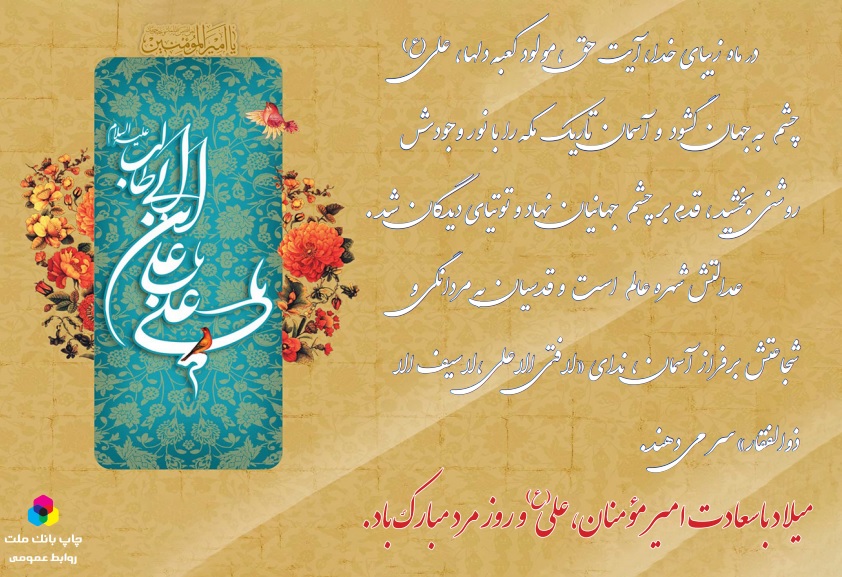 یا امیرالمؤمنین
علیه السلام
یا علی یا علی ابن ابی طالب
در ماه زیبای خدا، آیت حق، مولود کعبه دلها، علی (ع)
چشم به جهان گشود و آسمان تاریک مکه را با نور وجودش
روشنی بخشید، قدم بر چشم جهانیان نهاد و توتیای دیدگان شد.
عدالتش شهره عالم است و قدسیان به مردانگی و
شجاعتش بر فراز آسمان، ندای «لا فتی الا علی، لا سیف الا
ذوالفقار» سر می دهند.
میلاد با سعادت امیر مؤمنان، علی (ع) و روز مرد مبارک باد.
چاپ بانک ملت
روابط عمومی